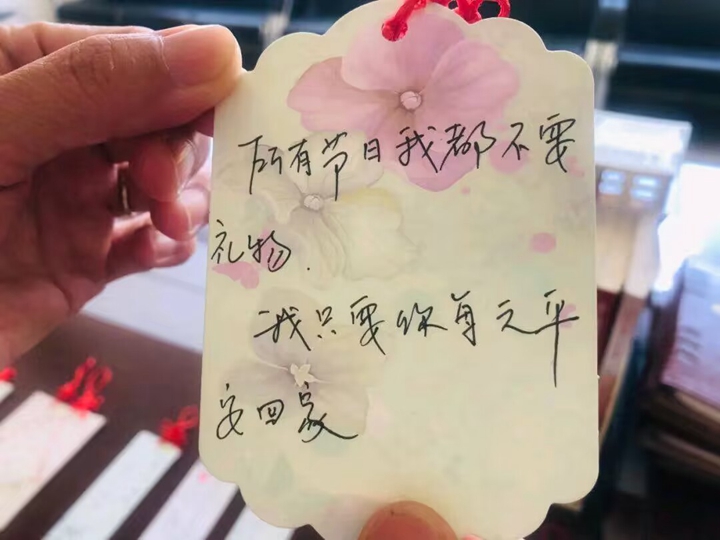 所有节日我都不要
礼物.
我只要你每天平
安回家